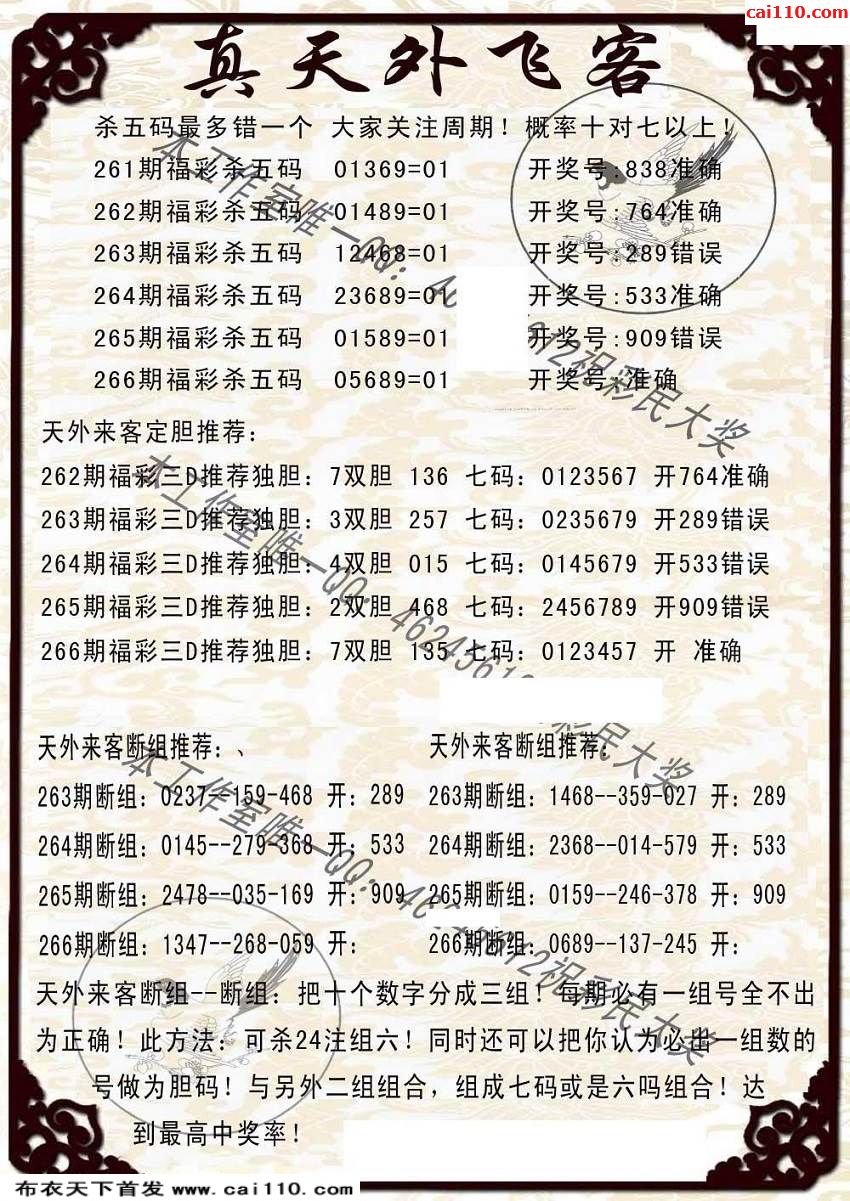 cai110.com
真天外飞客
杀五码最多错一个 大家关注周期！概率十对七以上！
261期福彩杀五码 01369=01 开奖号:838准确
262期福彩杀五码 01489=01 开奖号:764准确
263期福彩杀五码 12468=01 开奖号:289错误
264期福彩杀五码 23689=01 开奖号:533准确
265期福彩杀五码 01589=01 开奖号:909错误
266期福彩杀五码 05689=01 开奖号:准确
天外来客定胆推荐：
262期福彩三D推荐独胆：7双胆 136 七码：0123567 开764准确
263期福彩三D推荐独胆：3双胆 257 七码：0235679 开289错误
264期福彩三D推荐独胆：4双胆 015 七码：0145679 开533错误
265期福彩三D推荐独胆：2双胆 468 七码：2456789 开909错误
266期福彩三D推荐独胆：7双胆 135 七码：0123457 开 准确
天外来客断组推荐：、 天外来客断组推荐：
263期断组：0237--159-468 开：289 263期断组：1468--359-027 开：289
264期断组：0145--279-368 开：533 264期断组：2368--014-579 开：533
265期断组：2478--035-169 开：909 265期断组：0159--246-378 开：909
266期断组：1347--268-059 开： 266期断组：0689--137-245 开：
天外来客断组--断组：把十个数字分成三组！每期必有一组号全不出
为正确！此方法：可杀24注组六！同时还可以把你认为必出一组数的
号做为胆码！与另外二组组合，组成七码或是六吗组合！达
到最高中奖率！
本工作室唯一QQ：
祝彩民大奖
本工作室唯一QQ：
彩民大奖
本工作室唯一QQ：
祝彩民大奖
布衣天下首发 www.cai110.com